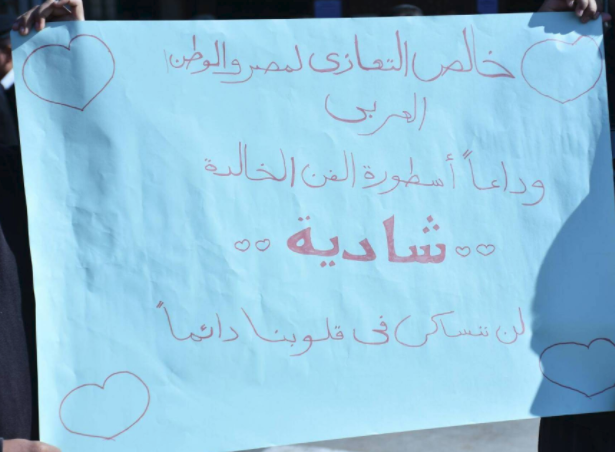 خالص التعازى لمصر والوطن
العربى
وداعاً أسطورة الفن الخالدة
شادية
لن ننساكى فى قلوبنا دائماً